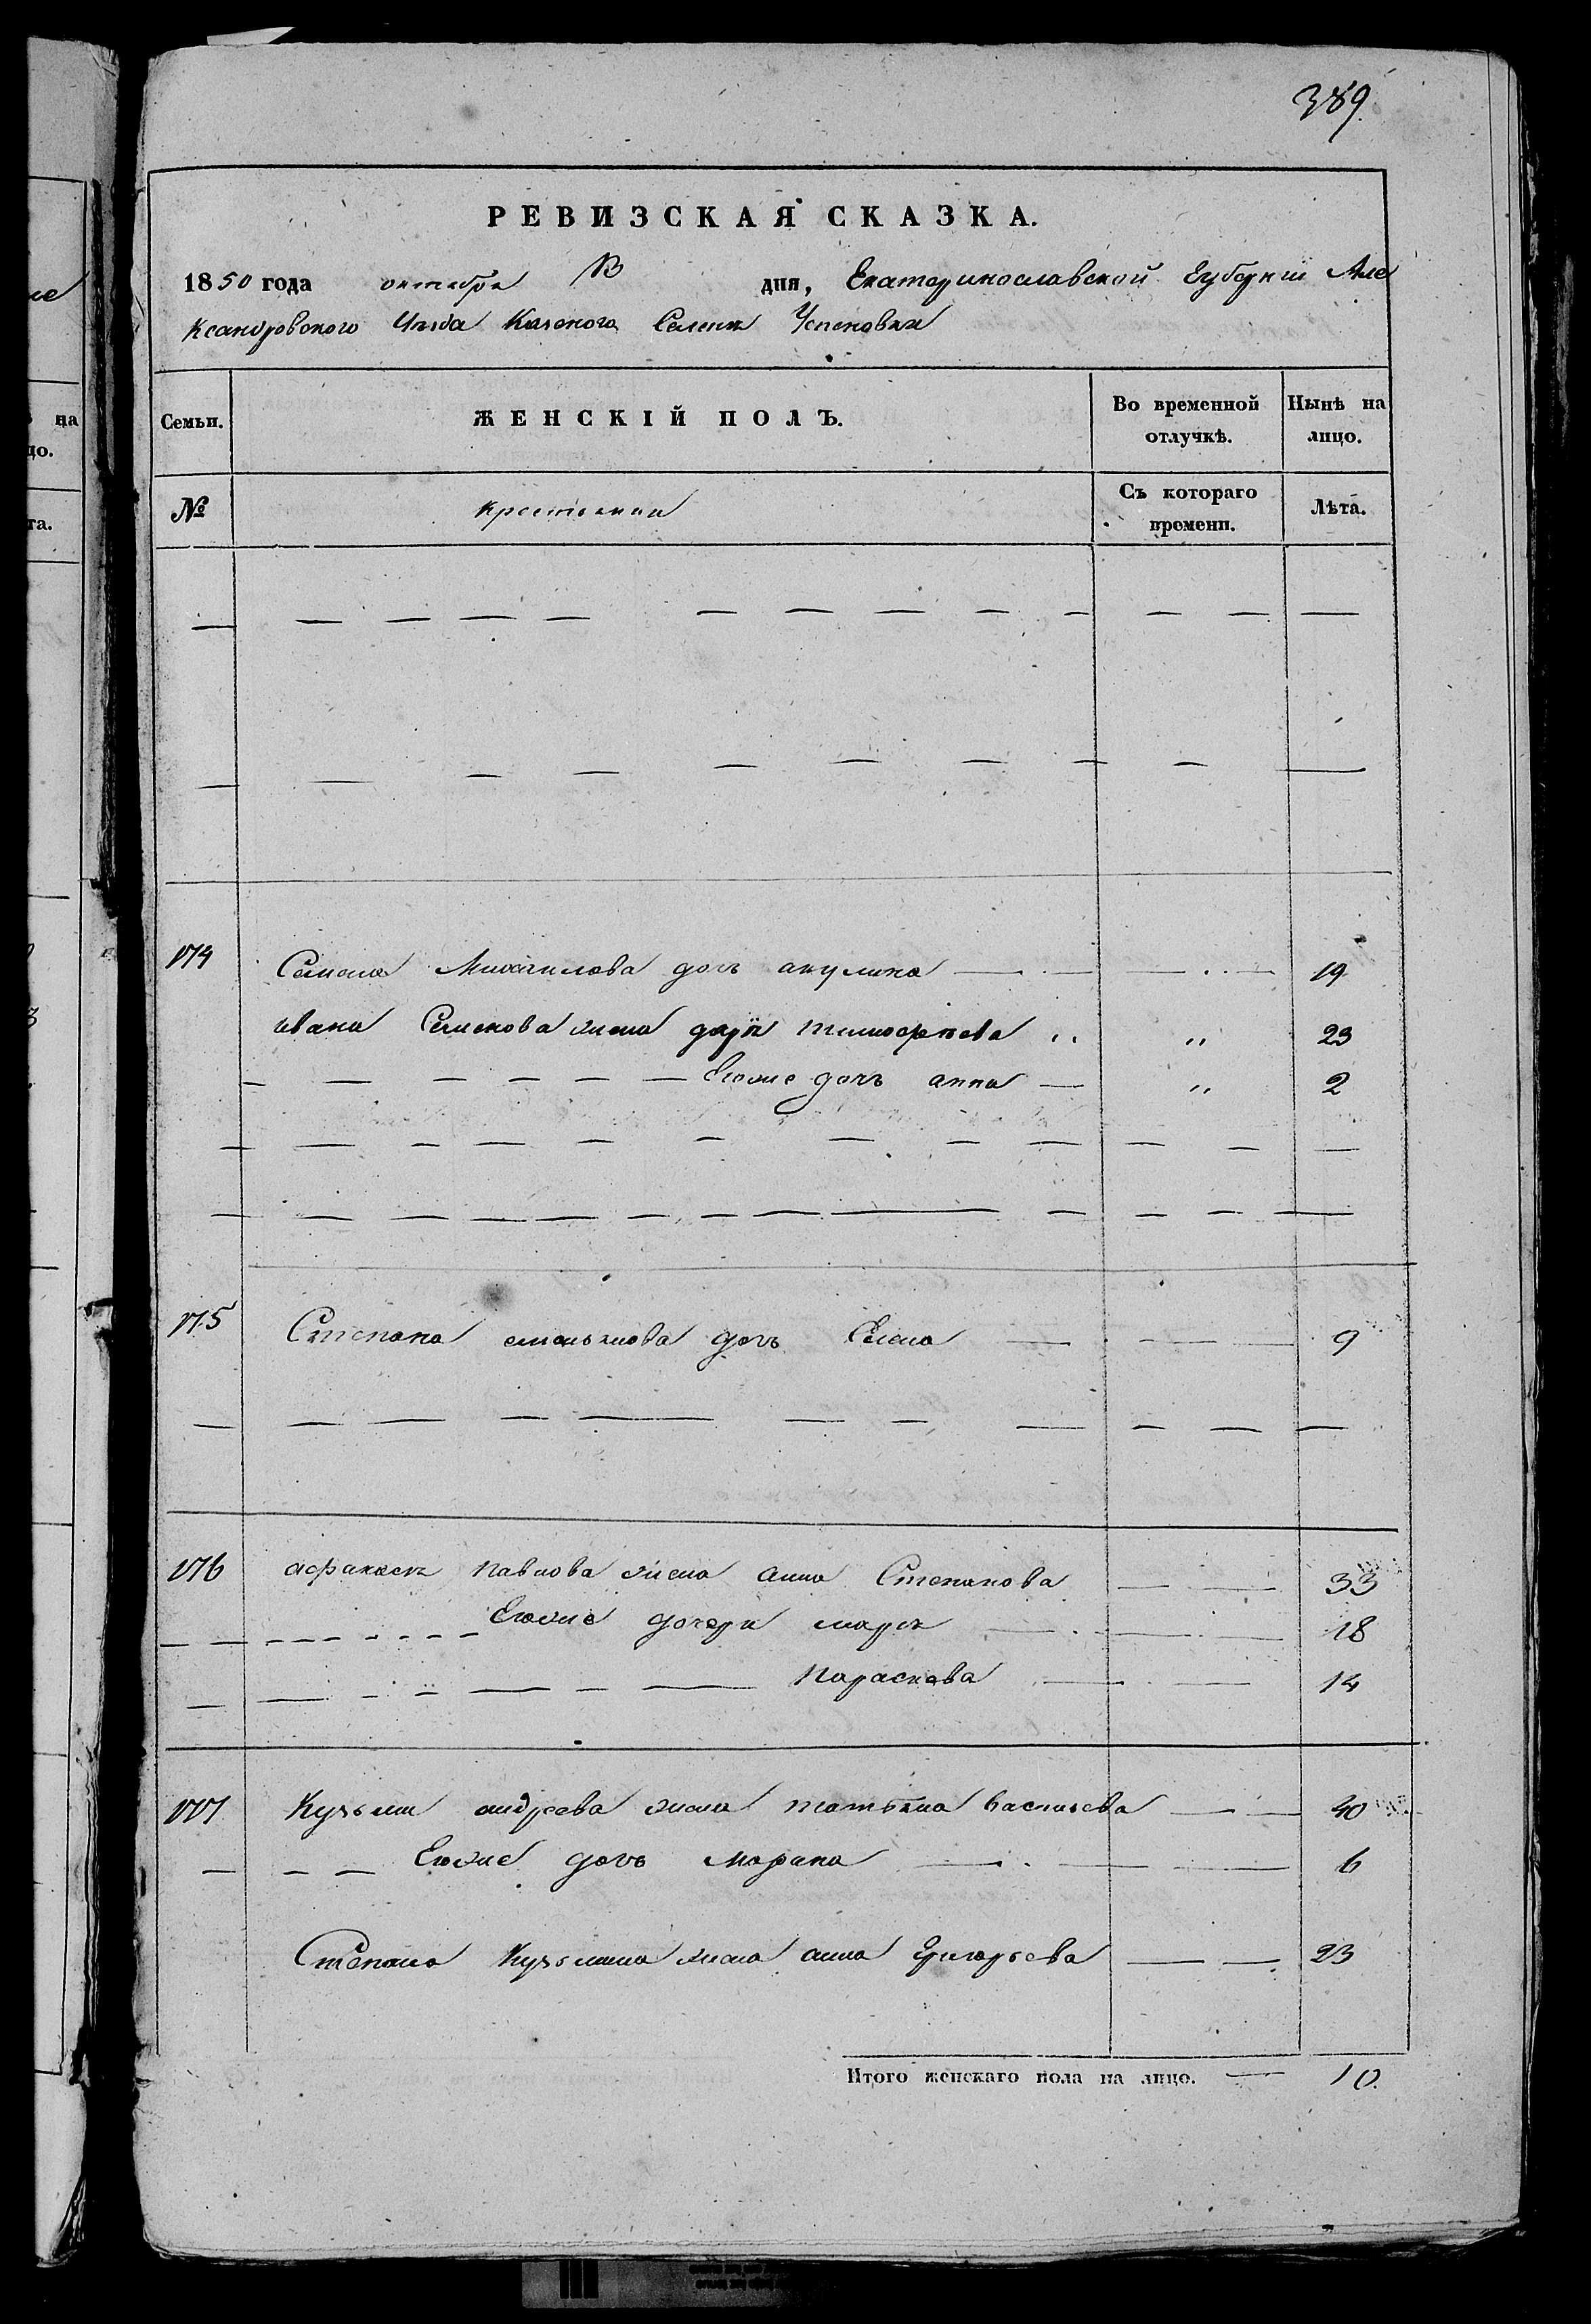 389.
РЕВИЗСКАЯ СКАЗКА.
1850 года октября 13 дня, Екатеринославской Губернии Але
ксандровского Уезда Казеного Селения Успеновки
Семьи.
ЖЕНСКІЙ ПОЛЪ.
Во временной отлучкѣ.
Нынѣ на лицо.
№
крестьянки
Съ котораго времени.
Лѣта.
174 Семена Михайлова дочь акулина 19
ивана Семенова жена дарья тимофеева 23
Егоже дочь анна 2
175 Степана емельянова дочь Елена 9
176 афанасия Павлова жена анна Степанова 33
Егоже дочери марья 18
Параскева 14
177 Кузьмы андреева жена татьяна васильева 40
Егоже дочь Марфа 6
Степана Кузьмина жена анна Григорьева 23
Итого женскаго пола на лицо. 10.